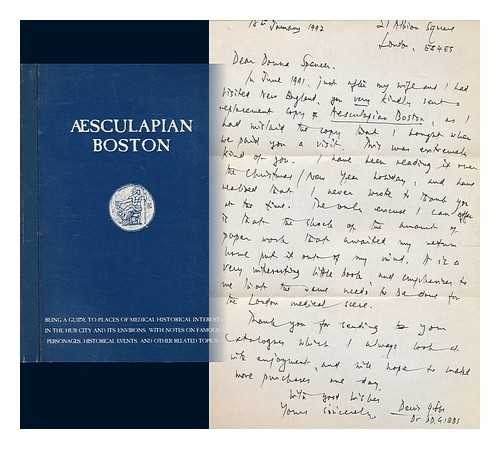 AESCULAPIAN
BOSTON
BEING A GUIDE TO PLACES OF MEDICAL HISTORICAL INTEREST
IN THE HUB CITY AND ITS ENVIRONS, WITH NOTES ON FAMOUS
PERSONAGES, HISTORICAL EVENTS, AND OTHER RELATED TOPICS
18th January 1992
21 Albion Square
London, E8 4ES
Dear Donna Spencer,
In June 1991, just after my wife and I had
visited New England, you very kindly sent a
replacement copy of Aesculapian Boston, as I
had mislaid the copy that I bought when
we paid you a visit. This was extremely
kind of you. I have been reading it over
the Christmas/New Year holiday, and have
realised that I never wrote to thank you
at the time. The only excuse I can offer
is that the shock of the amount of
paper work that awaited my return
home put it out of my mind. It is a
very interesting little book, and emphasises to
me that the same needs to be done for
the London medical scene.
Thank you for sending to your
catalogues which I always look at
with enjoyment, and will hope to make
more purchases one day.
With good wishes
Yours sincerely, Denis Gibbs
Dr DD GIBBS